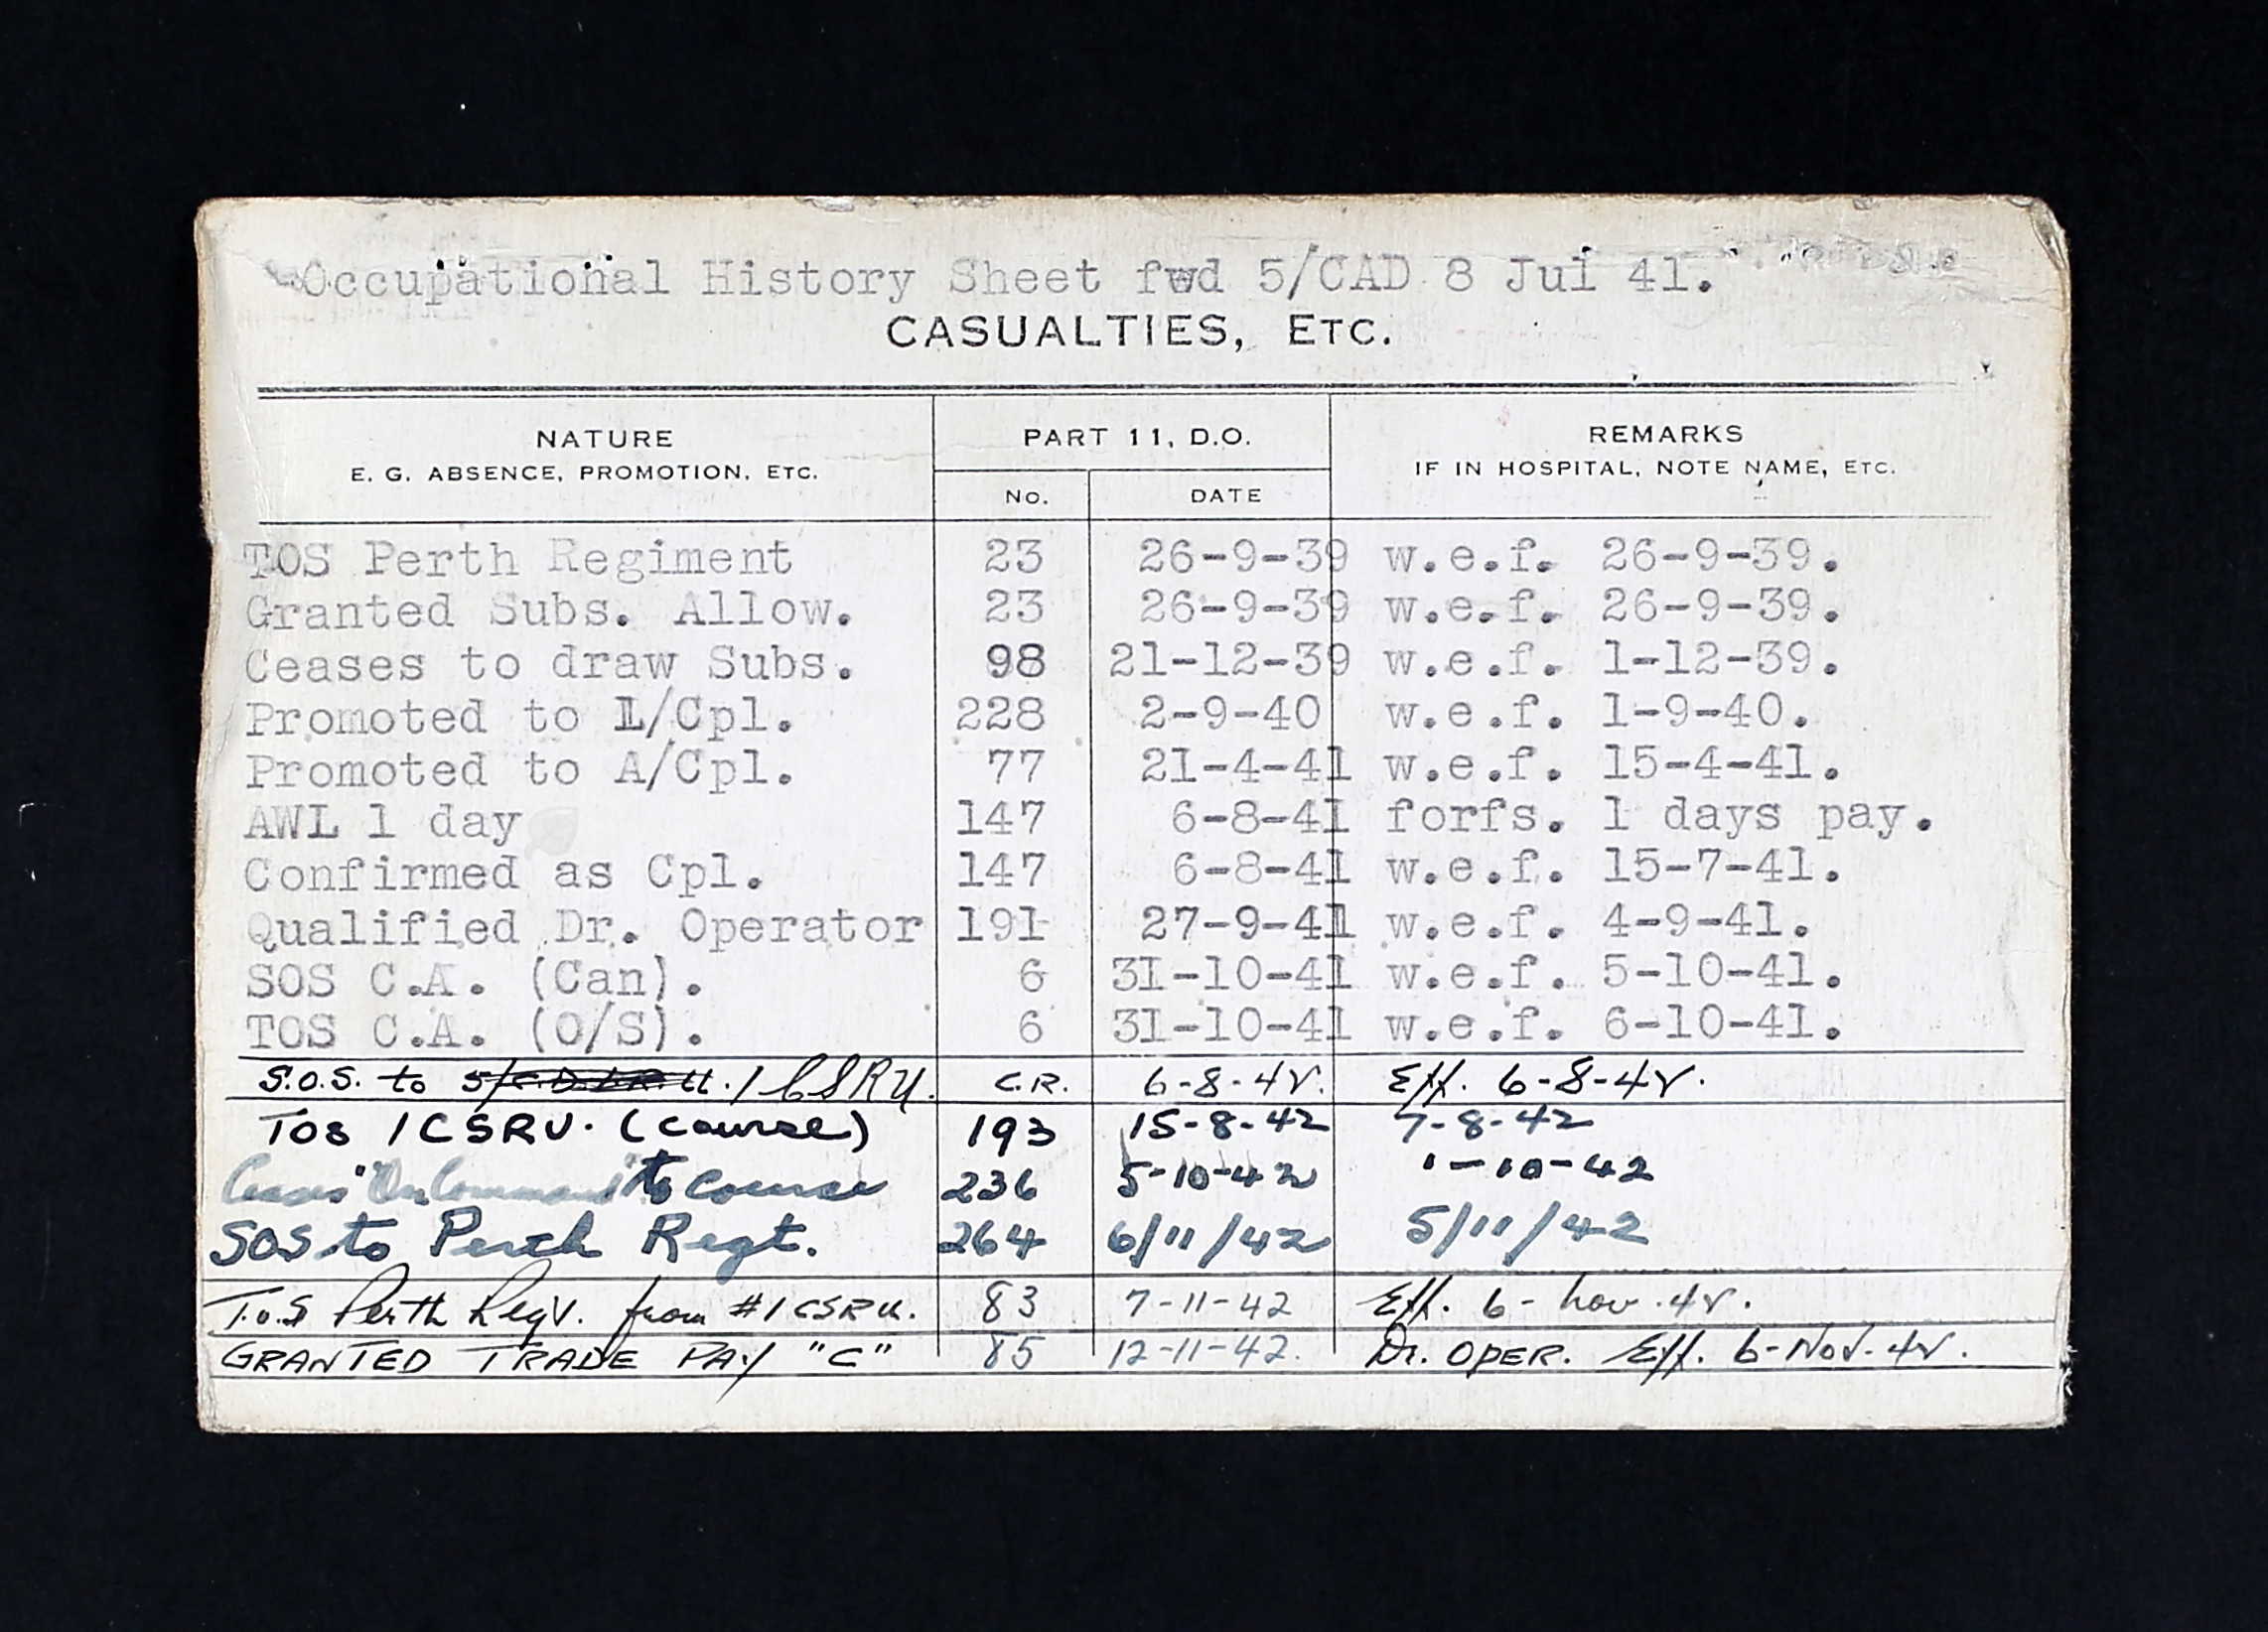 Occupational History Sheet fwd 5/CAD 8 Jul 41.
CASUALTIES, ETC.
NATURE
E. G. ABSENCE, PROMOTION, ETC.
PART 11, D.O.
No.
DATE
REMARKS
IF IN HOSPITAL, NOTE NAME, ETC.
TOS Perth Regiment 23 26-9-39 w.e.f. 26-9-39.
Granted Subs. Allow. 23 26-9-39 w.e.f. 26-9-39.
Ceases to draw Subs. 98 21-12-39 w.e.f. 1-12-39.
Promoted to L/Cpl. 228 2-9-40 w.e.f. 1-9-40.
Promoted to A/Cpl. 77 21-4-41 w.e.f. 15-4-41.
AWL 1 day 147 6-8-41 forfs. 1 days pay.
Confirmed as Cpl. 147 6-8-41 w.e.f. 15-7-41.
Qualified Dr. Operator 191 27-9-41 w.e.f. 4-9-41.
SOS C.A. (Can). 6 31-10-41 w.e.f. 5-10-41.
TOS C.A. (O/S). 6 31-10-41 w.e.f. 6-10-41.
S.O.S. to 1 CSRU. C.R. 6-8-42. Eff. 6-8-42.
TOS 1 CSRU. (course) 193 15-8-42 7-8-42
Ceases "On Command" to Course 236 5-10-42 1-10-42
SOS to Perth Regt. 264 6/11/42 5/11/42
T.O.S Perth Regt. from #1 CSRU. 83 7-11-42 Eff. 6-Nov.42.
GRANTED TRADE PAY "C" 85 12-11-42. Dr. OPER. Eff. 6-Nov.42.